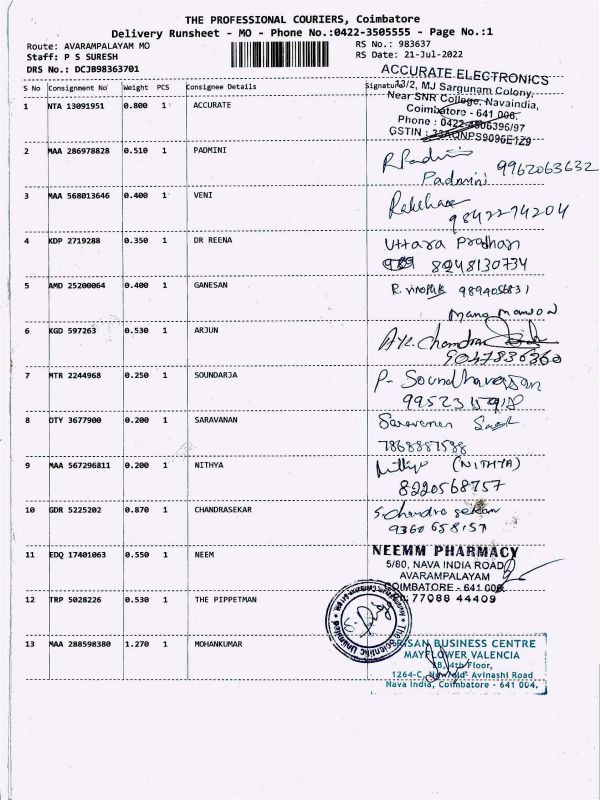 THE PROFESSIONAL COURIERS, Coimbatore
Delivery Runsheet - MO - Phone No.:0422-3505555 - Page No.:1
Route: AVARAMPALAYAM MO
RS No.: 983637
Staff: P S SURESH
RS Date: 21-Jul-2022
DRS No.: DCJB98363701
S No Consignment No Weight PCS Consignee Details Signature
ACCURATE ELECTRONICS
13/2, MJ Sargunam Colony,
Near SNR College, Navaindia,
Coimbatore - 641 006.
Phone : 0422-4506396/97
GSTIN :
1 NTA 13091951 0.800 1 ACCURATE
2 MAA 286978828 0.510 1 PADMINI
Padmini 9962063632
3 MAA 568013646 0.400 1 VENI
9842274204
4 KDP 2719288 0.350 1 DR REENA
Uttara Pradhan
8248130734
5 AMD 25200064 0.400 1 GANESAN
6 KGD 597263 0.530 1 ARJUN
7 MTR 2244968 0.250 1 SOUNDARJA
P. Soundhararajan
8 OTY 3677900 0.200 1 SARAVANAN
Saravanan
9 MAA 567296811 0.200 1 NITHYA
Nithya (NITHYA)
8220568757
10 GDR 5225202 0.870 1 CHANDRASEKAR
S. Chandra sekaran
9360658157
11 EDQ 17401063 0.550 1 NEEM
NEEMM PHARMACY
5/60, NAVA INDIA ROAD
AVARAMPALAYAM
COIMBATORE - 641 006
77088 44409
12 TRP 5028226 0.530 1 THE PIPPETMAN
13 MAA 288598380 1.270 1 MOHANKUMAR
BUSINESS CENTRE
MAYFLOWER VALENCIA
4th Floor,
1264-C, Avinashi Road
Nava India, Coimbatore - 641 004.